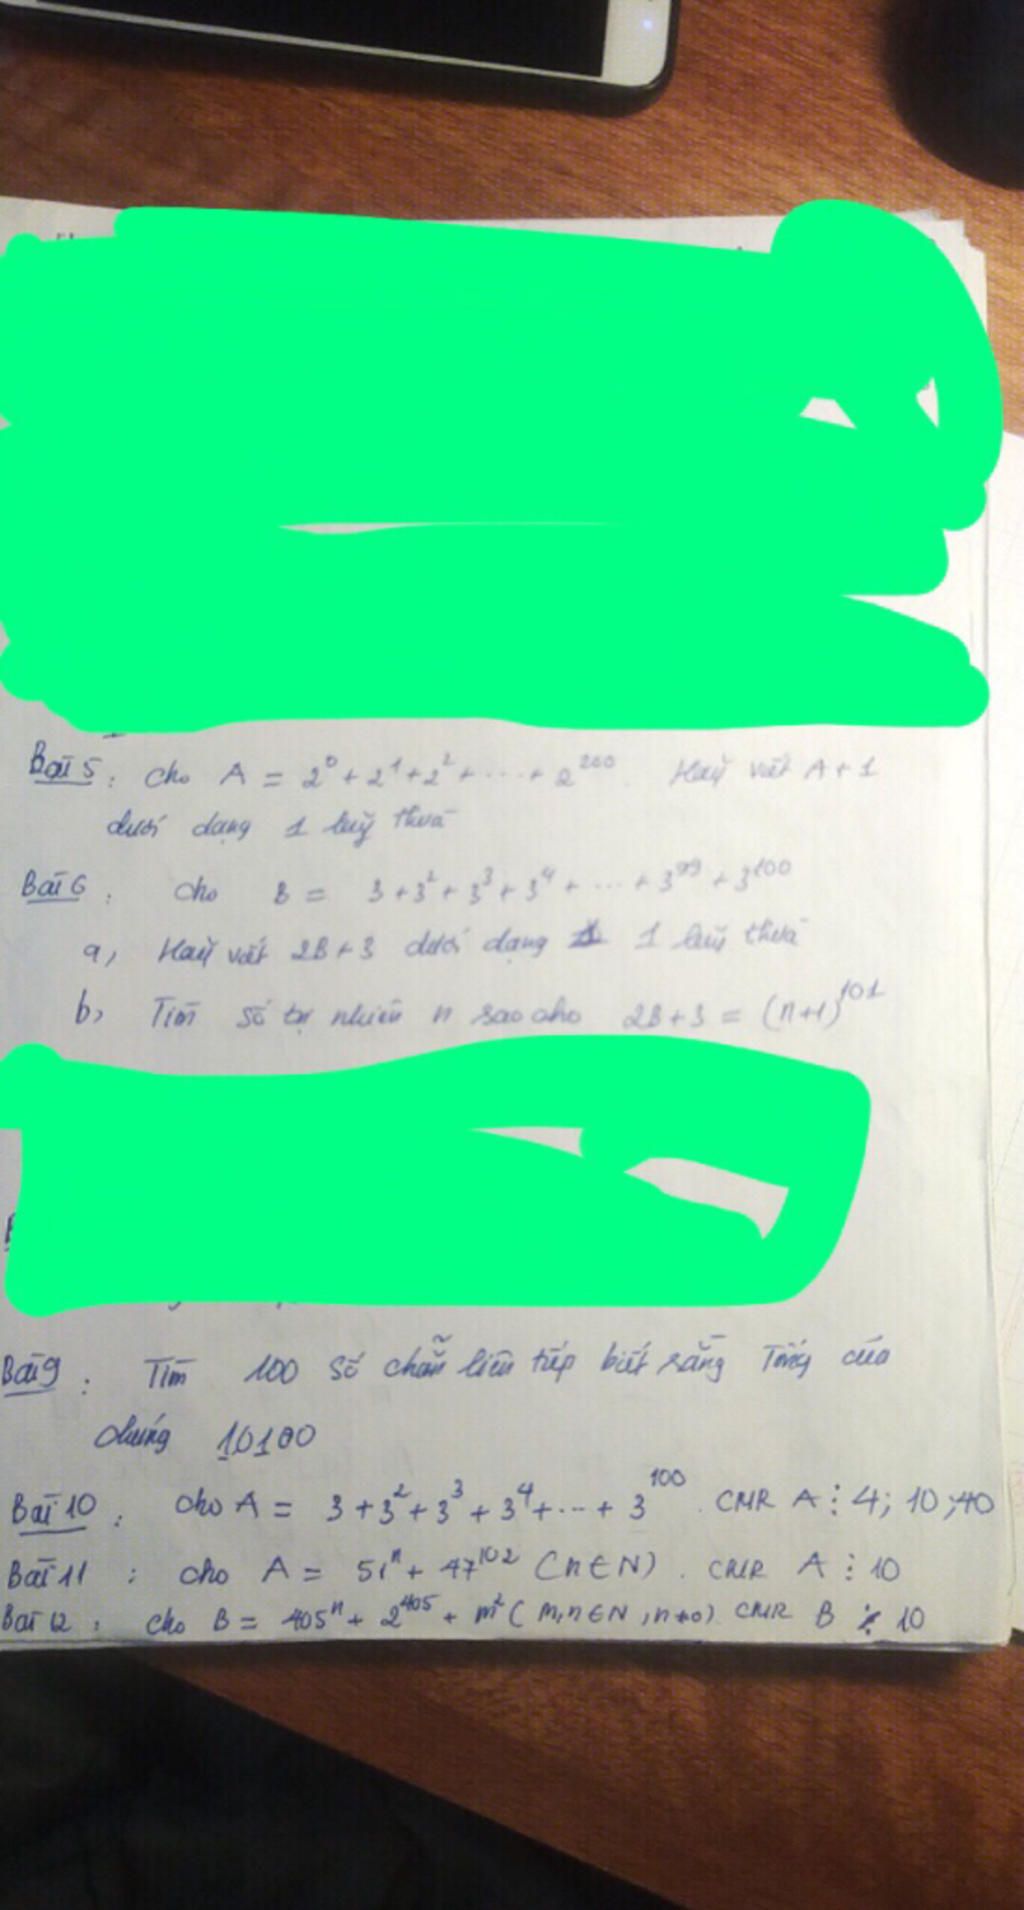 Bài 5 : Cho A = 2⁰ + 2¹ + 2² + .... + 2²⁰⁰ . Hãy viết A + 1
dưới dạng 1 luỹ thừa
Bài 6 : cho B = 3 + 3² + 3³ + 3⁴ + ... + 3⁹⁹ + 3¹⁰⁰
a, Hãy viết 2B + 3 dưới dạng 1 luỹ thừa
b, Tìm số tự nhiên n sao cho 2B + 3 = (n+1)¹⁰¹
Bài 9 : Tìm 100 số chẵn liên tiếp biết rằng Tổng của
chúng 10100
Bài 10 : cho A = 3 + 3² + 3³ + 3⁴ + ... + 3¹⁰⁰ . CMR A ⋮ 4; 10; 40
Bài 11 : cho A = 51ⁿ + 47¹⁰² (n ∈ N) . CMR A ⋮ 10
Bài 12 : cho B = 405ⁿ + 2⁴⁰⁵ + m² ( m,n ∈ N , n ≠ 0) CMR B ⋮̸ 10